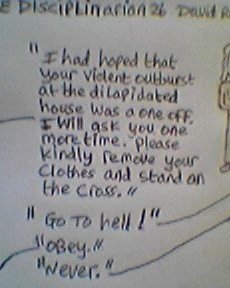 E DISCIPLINARIAN 26 DAVID R
"I had hoped that
your violent outburst
at the dilapidated
house was a one off.
I will ask you one
more time. Please
kindly remove your
clothes and stand on
the cross."
"GO TO hell!"
"Obey."
"Never."